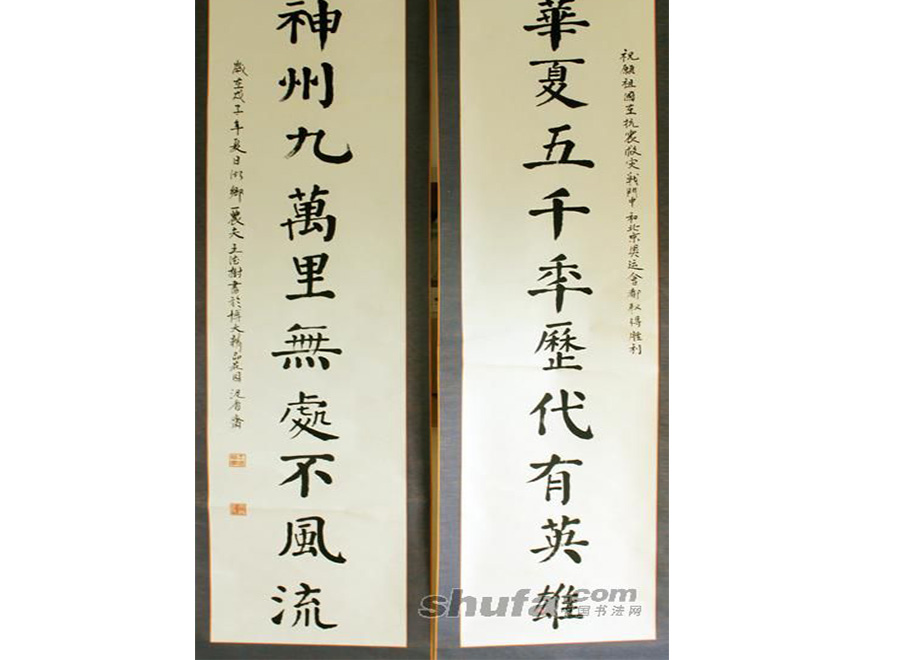 祝願祖國在抗震救灾戰鬥中和北京奥运會都取得勝利
華夏五千年歷代有英雄
神州九萬里無處不風流
歲在戊子年夏日
書於博大精品花園
shufa.com
中国书法网